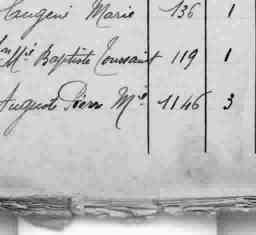 Eugène Marie 136 1
Jn Mie Baptiste Toussaint 119 1
Auguste Pierre Mie 1146 3